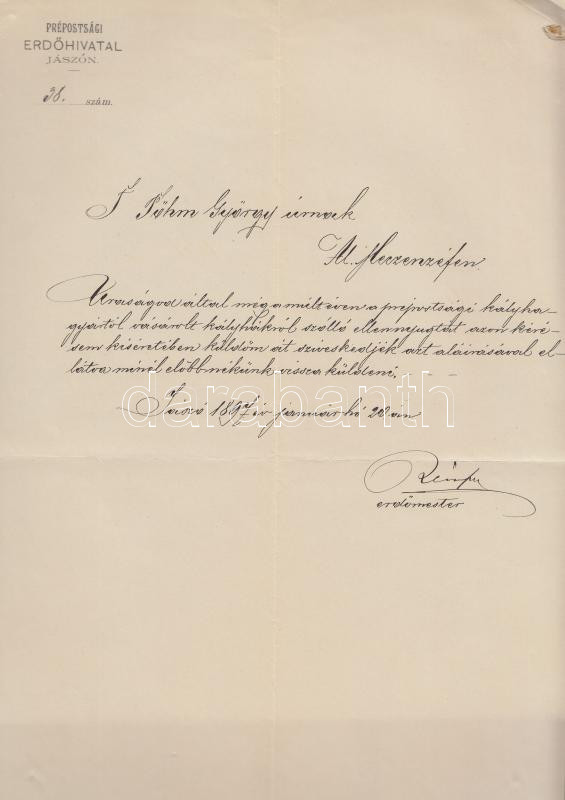 PRÉPOSTSÁGI
ERDŐHIVATAL
JÁSZÓN.
38. szám.
T Böhm György úrnak
Al. Meczenzéfen.
Uraságod által még a múlt évben a prépostsági kályha-
gyártól vásárolt kályhákról szólló ellennyugtát azon kéré-
sem kiséretében küldöm át sziveskedjék azt aláirásával el-
látva minél előbb nékünk vissza küldeni.
darabanth
Jászó 1897 év január hó 20án
erdőmester